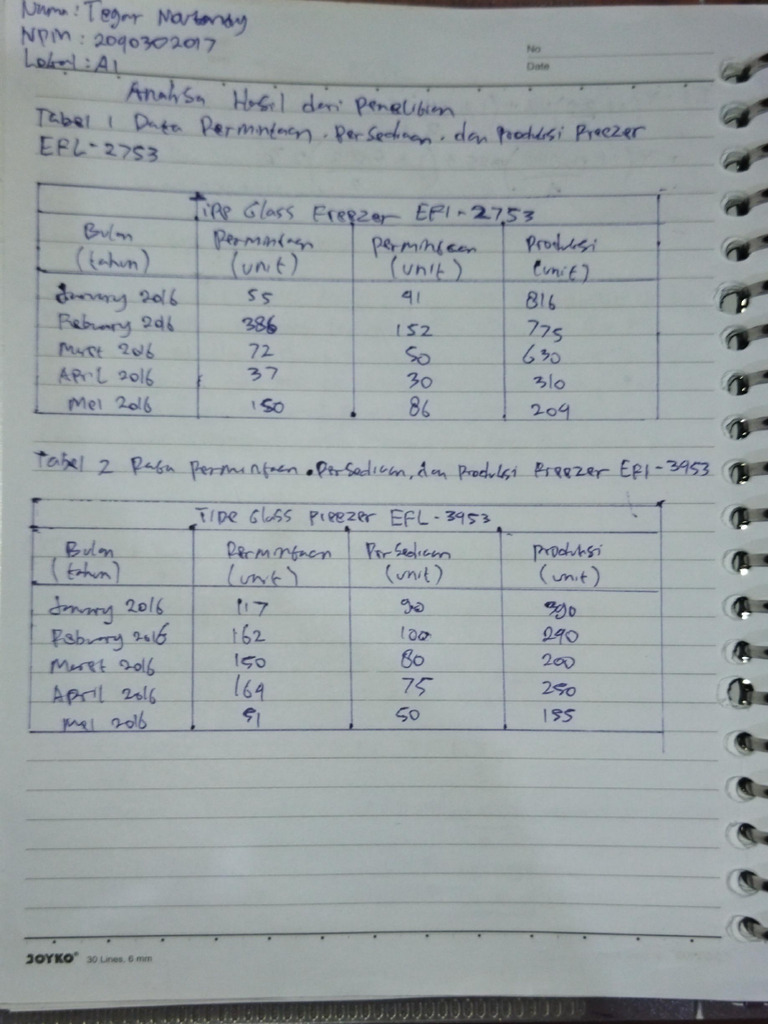 Nama : Tegar
NPM : 2040302017
Lokal : A1
No
Date
Analisa Hasil dari Penelitian
Tabel 1 Data Permintaan, Persediaan, dan Produksi Freezer
EFL-2753
Tipe Glass Freezer EFL-2753
Bulan (tahun) Permintaan (unit) Permintaan (unit) Produksi (unit)
January 2016 55 41 816
Febuary 2016 386 152 775
Maret 2016 72 50 630
April 2016 37 30 310
Mei 2016 150 86 209
Tabel 2 Data Permintaan, Persediaan, dan Produksi Freezer EFL-3953
Tipe Glass Freezer EFL-3953
Bulan (tahun) Permintaan (unit) Persediaan (unit) Produksi (unit)
January 2016 117 90 390
Febuary 2016 162 100 290
Maret 2016 150 80 200
April 2016 164 75 250
Mei 2016 50
JOYKO 30 Lines, 6 mm